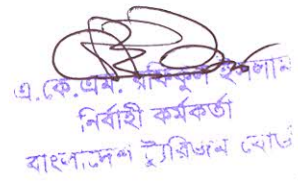 এ.কে.এম. রফিকুল ইসলাম
নির্বাহী কর্মকর্তা
বাংলাদেশ ট্যুরিজম বোর্ড